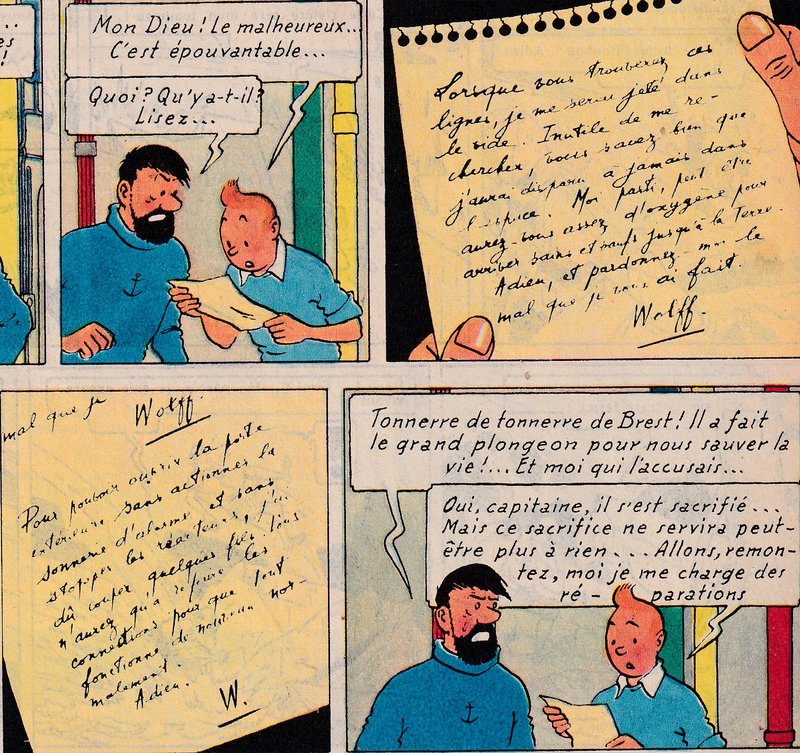 ...
es
!
Mon Dieu ! Le malheureux...
C'est épouvantable...
Quoi ? Qu'y a-t-il ?
Lisez...
Lorsque vous trouverez ces
lignes, je me serai jeté dans
le vide. Inutile de me re-
chercher, vous savez bien que
j'aurai disparu à jamais dans
l'espace. Moi parti, peut être
aurez-vous assez d'oxygène pour
arriver sains et saufs jusqu'à la Terre.
Adieu, et pardonnez-moi le
mal que je vous ai fait.
Wolff.
mal que je
Wolff.
Pour pouvoir ouvrir la porte
extérieure sans actionner la
sonnerie d'alarme et sans
stopper les réacteurs, j'ai
dû couper quelques fils. Vous
n'aurez qu'à refaire les
connections pour que tout
fonctionne de nouveau nor-
malement.
Adieu.
W.
Tonnerre de tonnerre de Brest ! Il a fait
le grand plongeon pour nous sauver la
vie !... Et moi qui l'accusais...
Oui, capitaine, il s'est sacrifié...
Mais ce sacrifice ne servira peut-
être plus à rien... Allons, remon-
tez, moi je me charge des
ré - parations